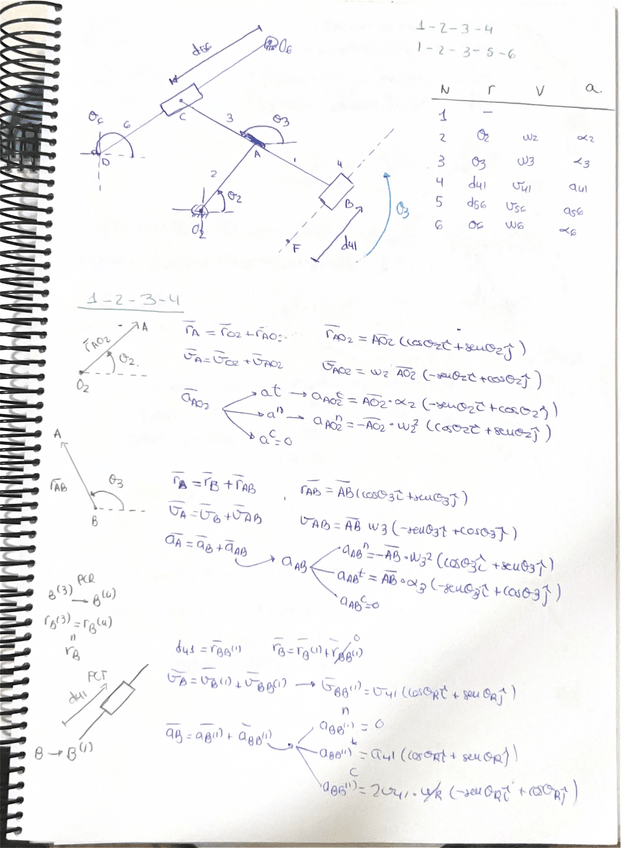 1-2-3-4
1-2-3-5-6
d56
O6
θ6
6
C
3
θ3
D
A
2
4
B
θ2
O2
F
d41
θ3
N r v a
1 -
2 θ2 w2 α2
3 θ3 w3 α3
4 d41 v41 a41
5 d56 v56 a56
6 θ6 w6 α6
1-2-3-4
A
r̄AO2
θ2
O2
r̄A = r̄O2 + r̄AO2
r̄AO2 = AO2 (cosθ2 î + senθ2 ĵ)
v̄A = v̄O2 + v̄AO2
v̄AO2 = w2 AO2 (-senθ2 î + cosθ2 ĵ)
āAO2
at → aAO2^t = AO2 · α2 (-senθ2 î + cosθ2 ĵ)
a^n → aAO2^n = -AO2 · w2² (cosθ2 î + senθ2 ĵ)
a^c = 0
A
r̄AB
θ3
B
r̄A = r̄B + r̄AB
r̄AB = AB (cosθ3 î + senθ3 ĵ)
v̄A = v̄B + v̄AB
v̄AB = AB w3 (-senθ3 î + cosθ3 ĵ)
āA = āB + āAB
aAB
aAB^n = -AB · w3² (cosθ3 î + senθ3 ĵ)
aAB^t = AB · α3 (-senθ3 î + cosθ3 ĵ)
aAB^c = 0
PCR
B(3) → B(4)
rB(3) = rB(4)
rB
PCT
d41
B → B(1)
d41 = r̄BB(1)
r̄B = r̄B(1) + r̄BB(1) 0
v̄B = v̄B(1) + v̄BB(1) → v̄BB(1) = v41 (cosθR î + senθR ĵ)
āB = āB(1) + āBB(1)
aBB(1)^n = 0
aBB(1)^t = a41 (cosθR î + senθR ĵ)
aBB(1)^c = 2v41 · wR (-senθR î + cosθR ĵ)